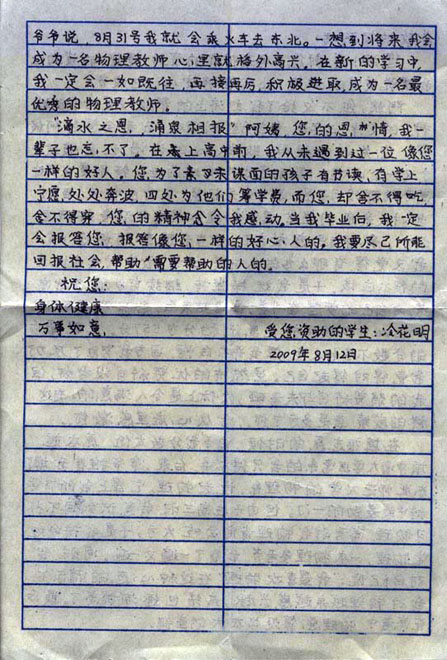 爷爷说，8月31号我就会乘火车去东北。一想到将来我会
成为一名物理教师心里就格外高兴。在新的学习中，
我一定会一如既往，再接再厉，积极进取，成为一名最
优秀的物理教师。
"滴水之恩，涌泉相报"阿姨，您的恩情，我一
辈子也忘不了。在未上高中前，我从未遇到过一位像您
一样的好人。您为了素未谋面的孩子有书读，有学上
宁愿处处奔波，四处为他们筹学费，而您，却舍不得吃，
舍不得穿，您的精神令我感动。当我毕业后，我一定
会报答您，报答像您一样的好心人的。我要尽己所能
回报社会，帮助需要帮助的人的。
祝您：
身体健康
万事如意.
受您资助的学生：冷花明
2009年8月12日